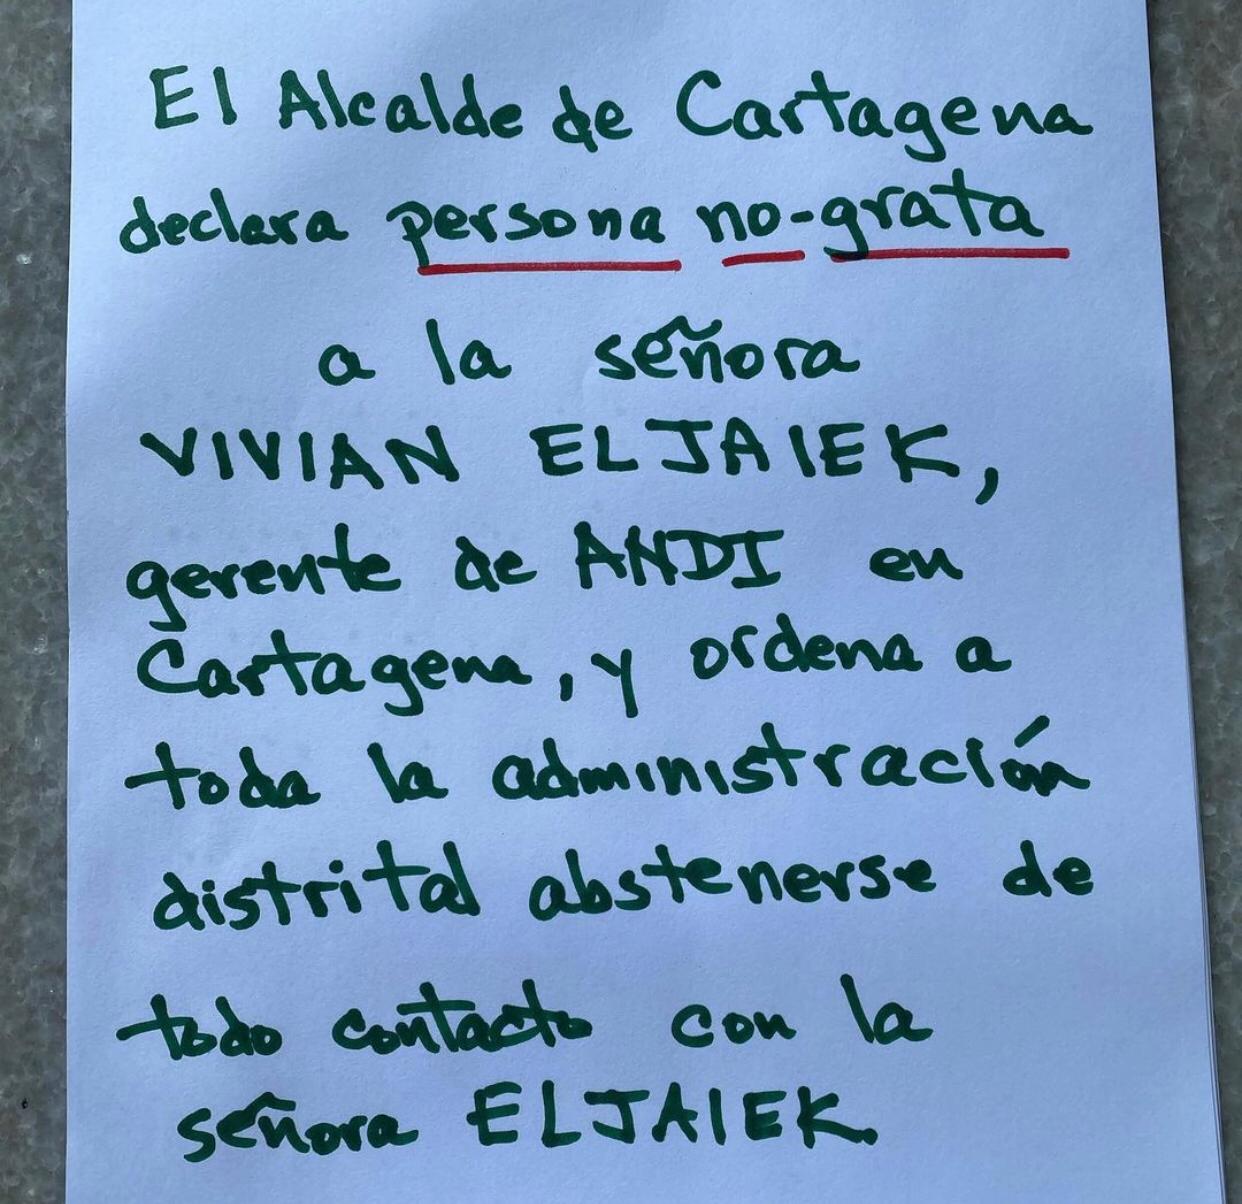 El Alcalde de Cartagena
declara persona no-grata
a la señora
VIVIAN ELJAIEK,
gerente de ANDI en
Cartagena, y ordena a
toda la administración
distrital abstenerse de
todo contacto con la
señora ELJAIEK.